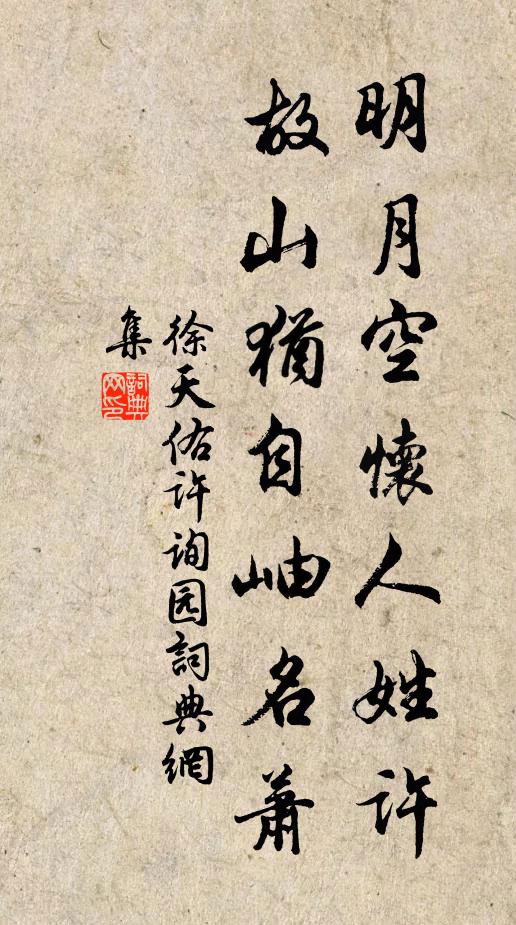 明月空懷人姓许
故山猶自岫名蕭
徐天佑许询园詞典網
集
詞典网印